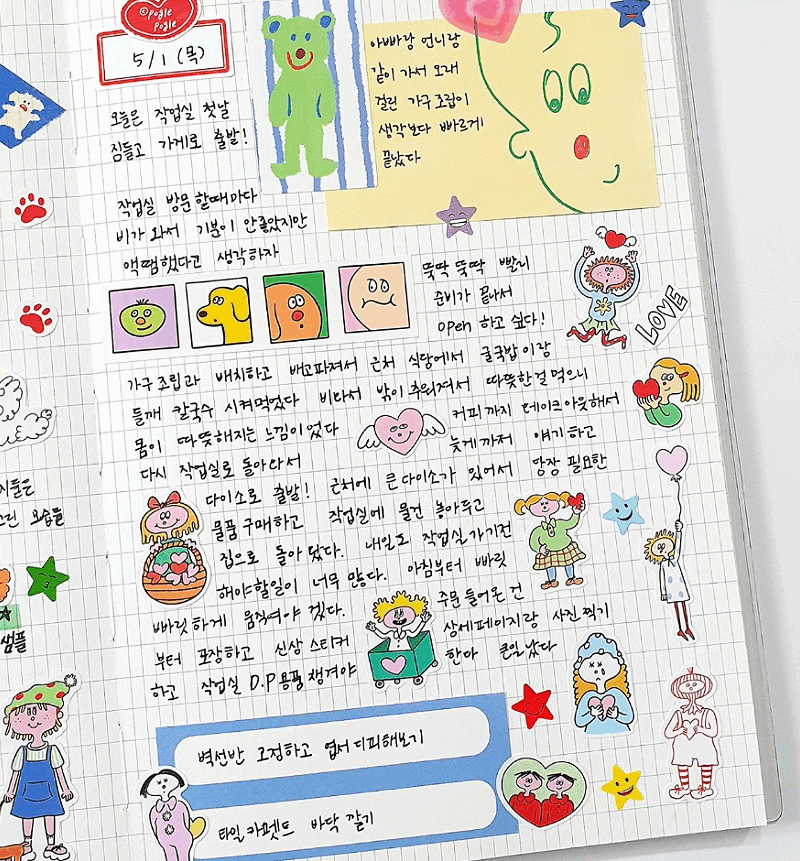 ©Pogle
Pogle
5/1 (목)
오늘은 작업실 첫날
짐들고 가게로 출발!
아빠랑 언니랑
같이 가서 오래
걸린 가구조립이
생각보다 빠르게
끝났다
작업실 방문할때마다
비가 와서 기분이 안좋았지만
액땜했다고 생각하자
뚝딱 뚝딱 빨리
준비가 끝나서
open 하고 싶다!
LOVE
가구조립과 배치하고 배고파져서 근처 식당에서 굴국밥이랑
들깨 칼국수 시켜먹었다 비와서 밖이 추워져서 따뜻한걸 먹으니
몸이 따뜻해지는 느낌이었다 커피까지 테이크아웃해서
다시 작업실로 돌아와서 늦게까지 얘기하고
다이소로 출발! 근처에 큰다이소가 있어서 당장 필요한
물품구매하고 작업실에 물건 놓아두고
집으로 돌아왔다. 내일도 작업실가기전
해야할일이 너무 많다. 아침부터 빠릿
빠릿하게 움직여야겠다. 주문 들어온 건
부터 포장하고 신상스티커 상세페이지랑 사진찍기
하고 작업실 D.P용품챙겨야 한다 큰일났다
벽선반 고정하고 엽서디피해보기
타일카펫트 바닥 깔기
모습들
샘플